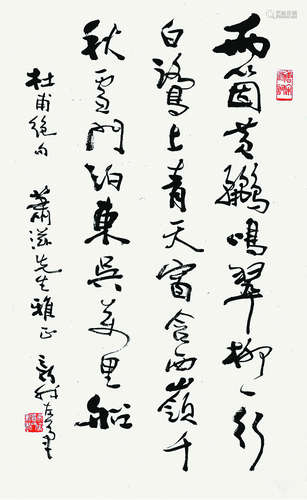 两个黄鹂鸣翠柳一行
白鹭上青天窗含西岭千
秋雪门泊东吴万里船
杜甫绝句 萧滋先生雅正